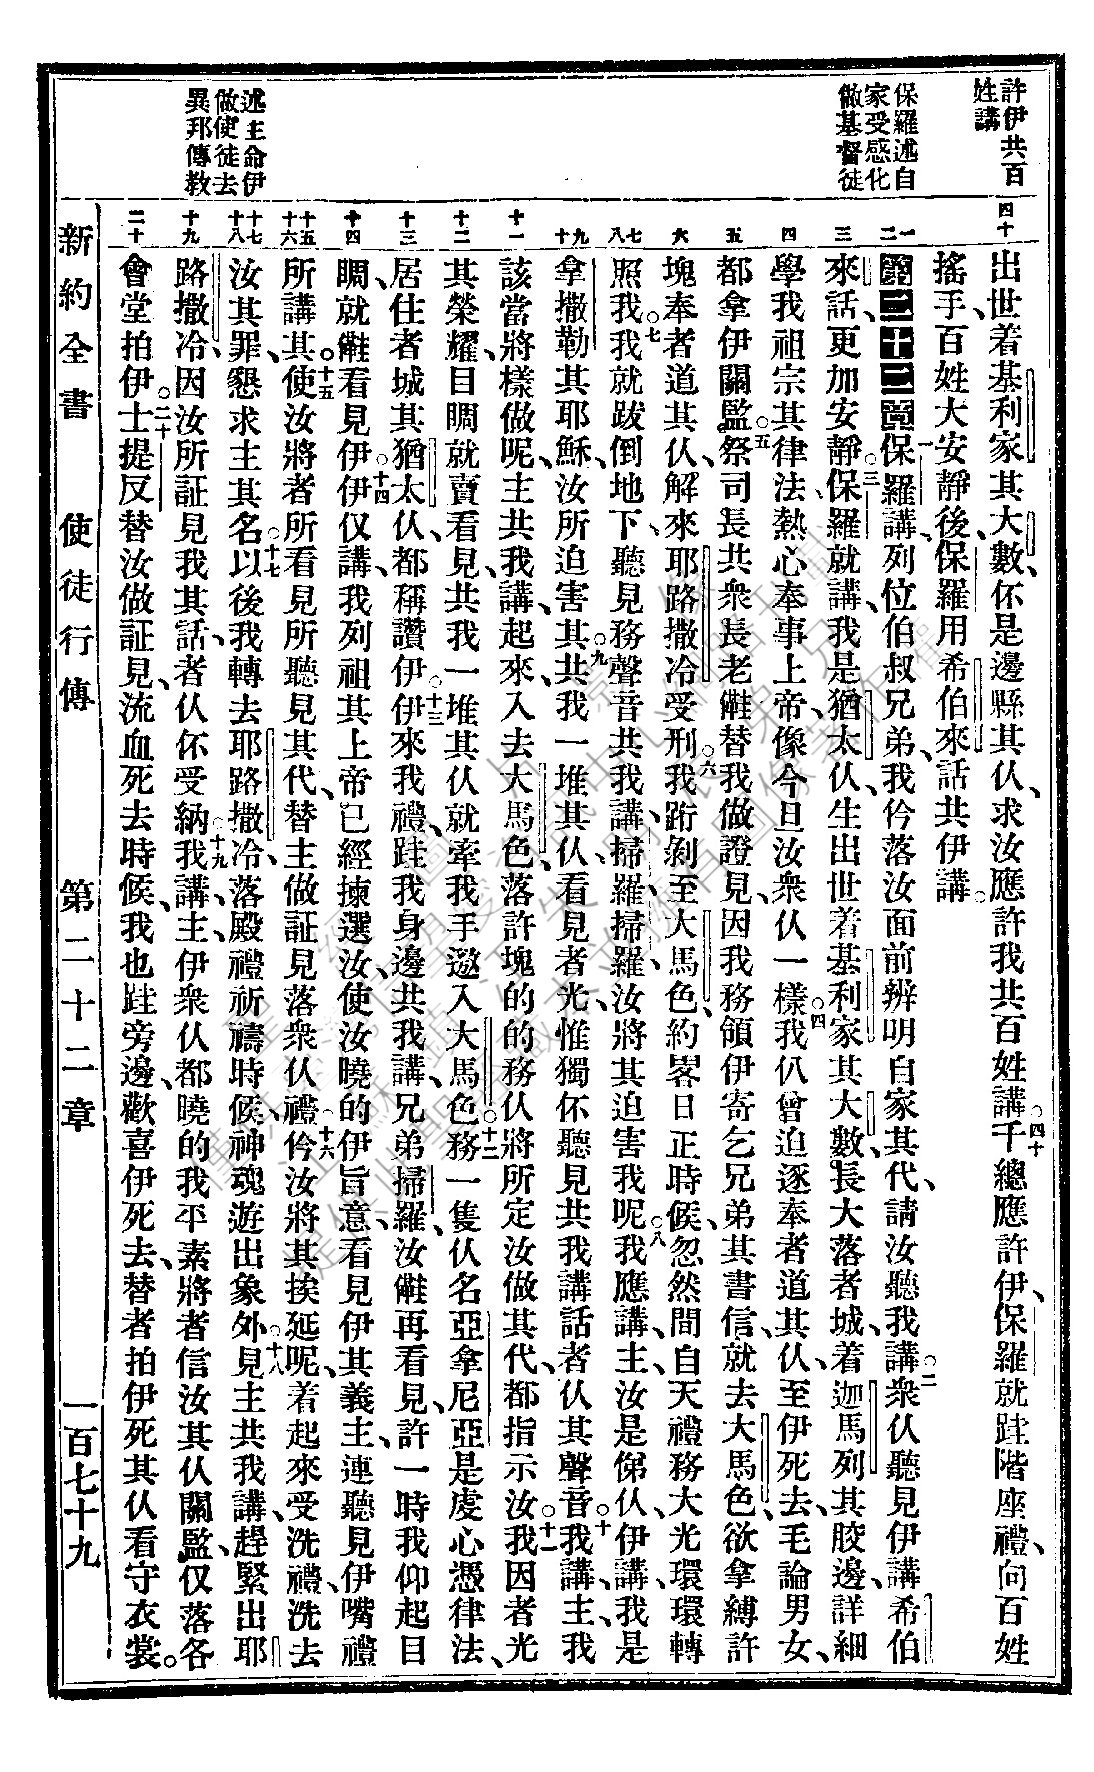 許伊共百
姓講
保羅述自
家受感化
做基督徒
述主命伊
做使徒去
異邦傳教
四十
一
二
三
四
五
六
七
八
九
十
十一
十二
十三
十四
十五
十六
十七
十八
十九
二十
出世着基利家其大數、伓是邊縣其仈、求汝應許我共百姓講○四十千總應許伊、保羅就跬階座禮、向百姓
搖手、百姓大安靜後、保羅用希伯來話共伊講。
第二十二章一保羅講、列位伯叔兄弟、我仱落汝面前辨明自家其代、請汝聽我講○二衆仈聽見伊講希伯
來話、更加安靜○三保羅就講、我是猶太仈、生出世着基利家其大數、長大落者城、着迦馬列其骹邊、詳細
學我祖宗其律法、熱心奉事上帝、像今旦汝衆仈一樣○四我仈曾迫逐奉者道其仈、至伊死去、毛論男女、
都拿伊關監○五祭司長共衆長老、𣍐替我做證見、因我務領伊寄乞兄弟其書信、就去大馬色、欲拿縛許
塊奉者道其仈、解來耶路撒冷受刑○六我跡剝至大馬色、約畧日正時候、忽然間自天禮務大光環環轉
照我○七我就跋倒地下、聽見務聲音共我講、掃羅、掃羅、汝將其迫害我呢○八我應講、主、汝是俤仈、伊講、我是
拿撒勒其耶穌、汝所迫害其○九共我一堆其仈、看見者光、惟獨伓聽見共我講話者仈其聲音○十我講、主、我
該當將樣做呢、主共我講、起來、入去大馬色、落許塊的的務仈將所定汝做其代、都指示汝○十一我因者光
其榮耀、目睭就賣看見、共我一堆其仈、就牽我手、邀入大馬色○十二務一隻仈名亞拿尼亞、是虔心憑律法、
居住者城其猶太仈、都稱讚伊○十三伊來我禮、跬我身邊、共我講、兄弟掃羅、汝𣍐再看見、許一時我仰起目
睭、就𣍐看見伊○十四伊仅講、我列祖其上帝、已經揀選汝、使汝曉的伊旨意、看見伊其義主、連聽見伊嘴禮
所講其。十五使汝將者所看見所聽見其代、替主做証見落衆仈禮○十六仱汝將其挨延呢、着起來受洗禮、洗去
汝其罪、懇求主其名○十七以後我轉去耶路撒冷、落殿禮祈禱時候、神魂遊出象外○十八見主共我講、趕緊出耶
路撒冷、因汝所証見我其話、者仈伓受納○十九我講、主、伊衆仈都曉的我平素將者信汝其仈關監、仅落各
會堂拍伊。二十士提反替汝做証見、流血死去時候、我也跬旁邊、歡喜伊死去、替者拍伊死其仈看守衣裳。
新約全書　使徒行傳　第二十二章　一百七十九